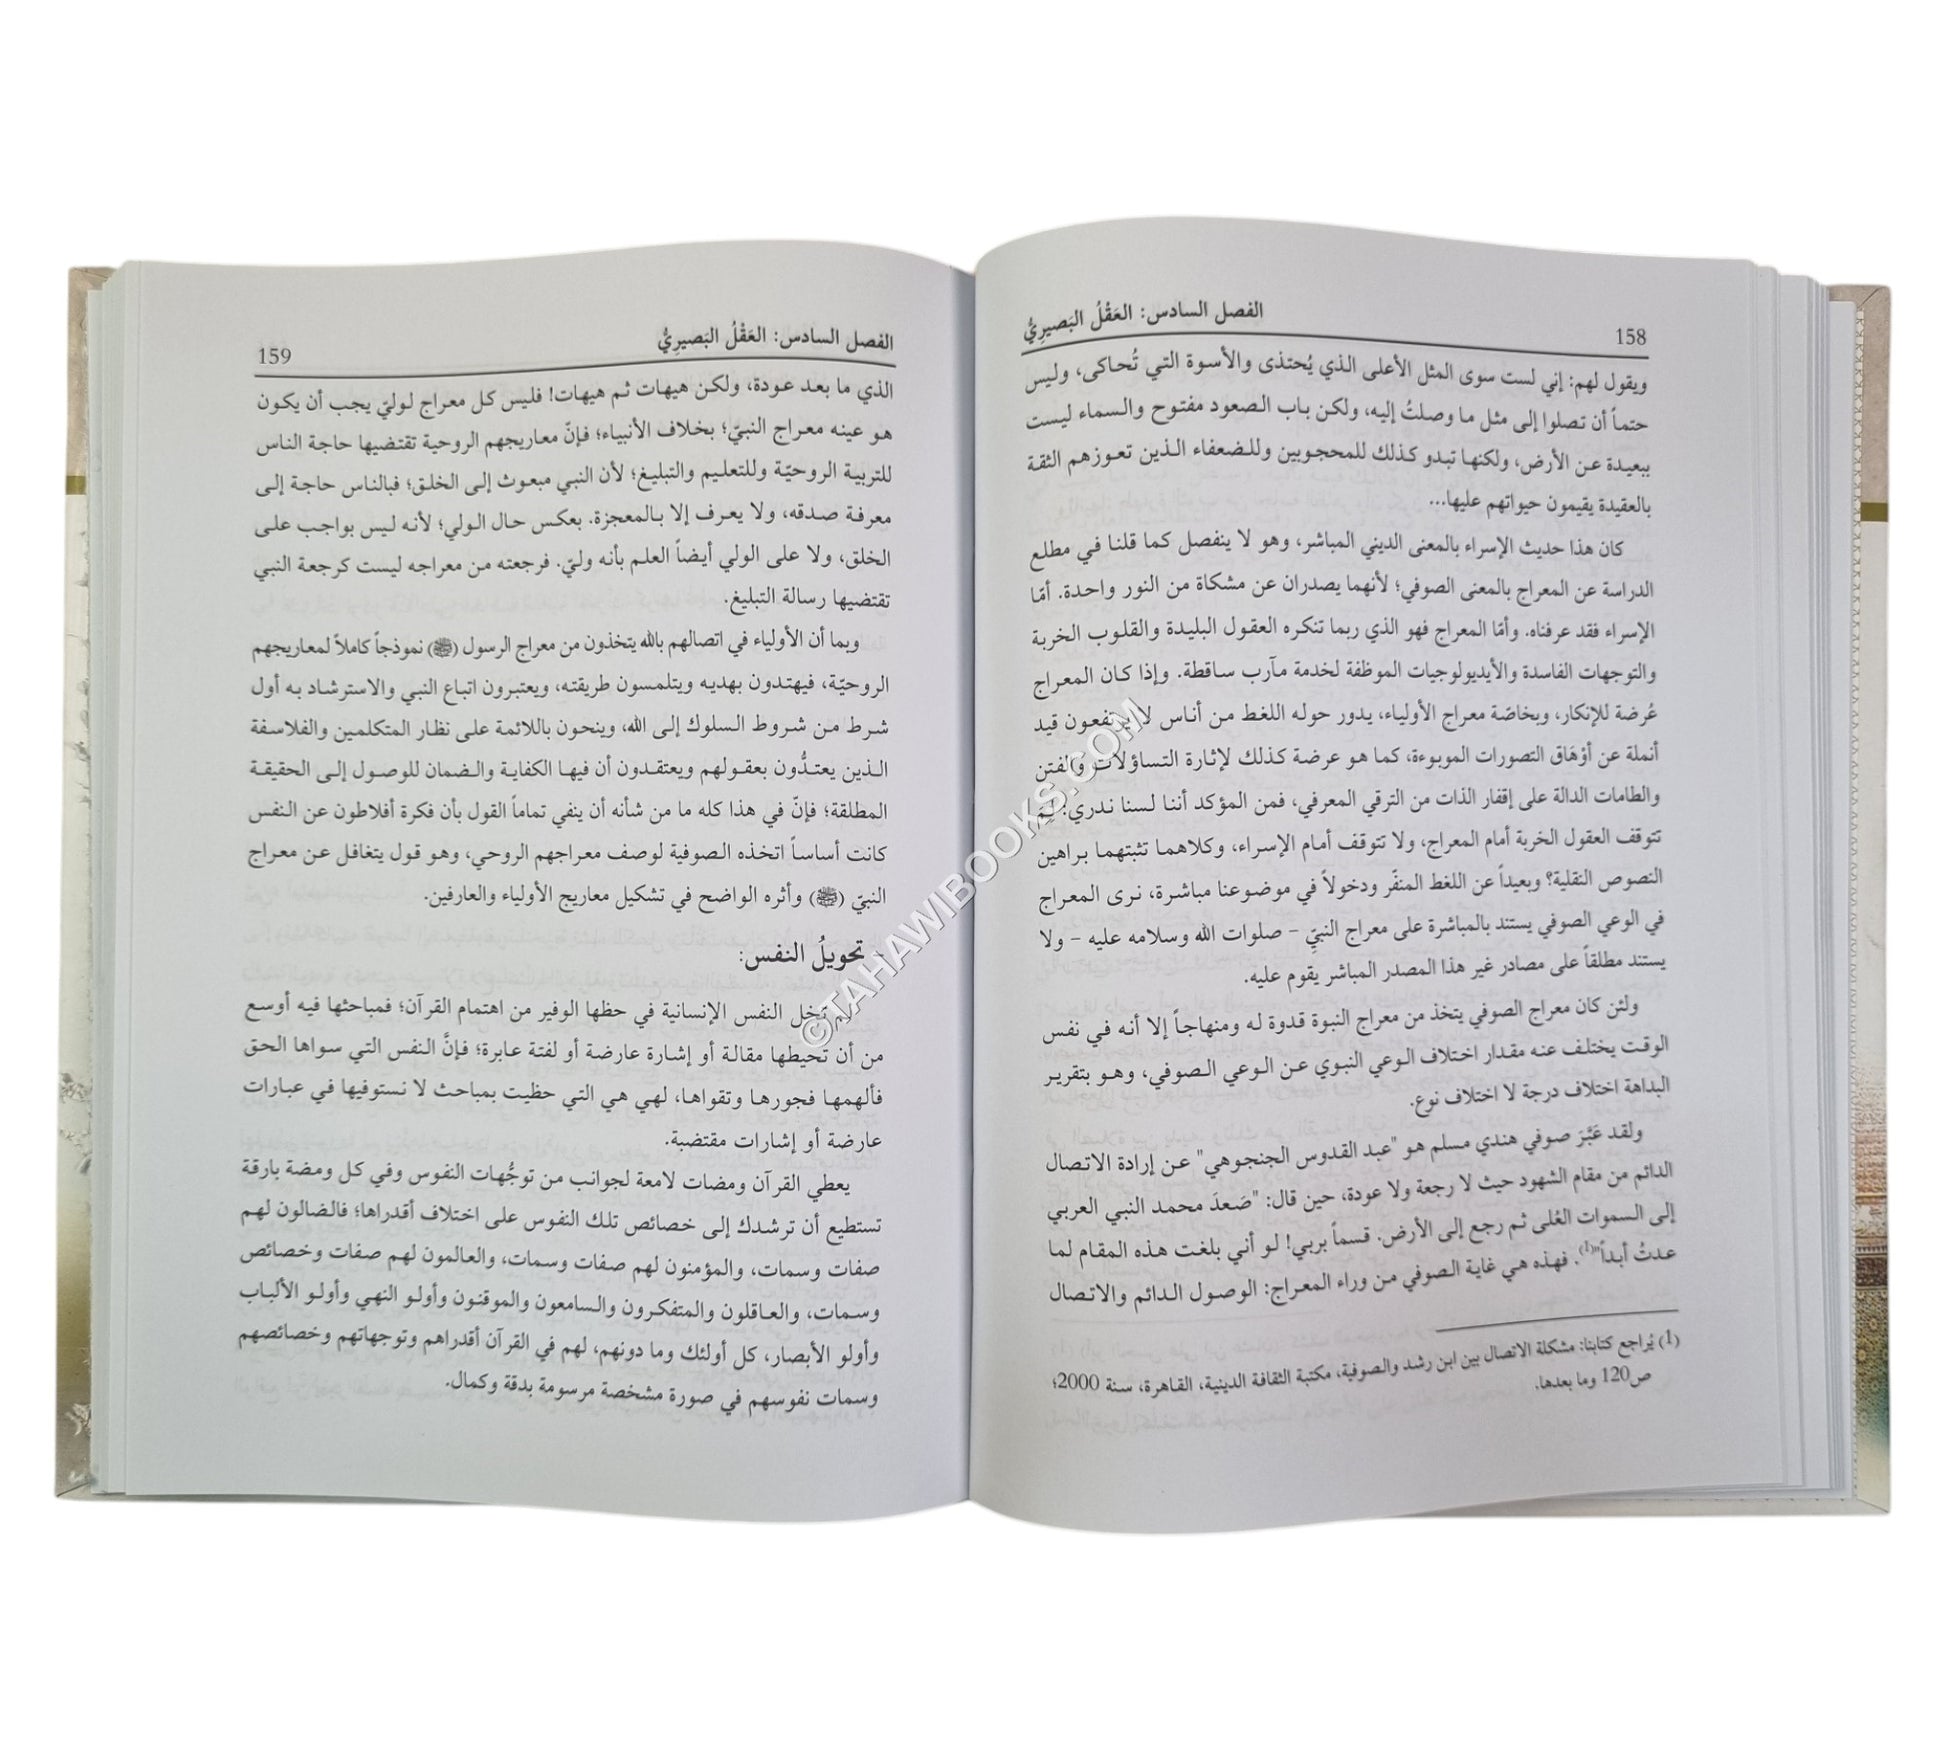 158
الفصل السادس: العَقْلُ البَصيرِيُّ
ويقول لهم: إني لست سوى المثل الأعلى الذي يُحتذى والأسوة التي تُحاكى، وليس
حتماً أن تصلوا إلى مثل ما وصلتُ إليه، ولكن باب الصعود مفتوح والسماء ليست
ببعيدة عن الأرض، ولكنها تبدو كذلك للمحجوبين وللضعفاء الذين تعوزهم الثقة
بالعقيدة يقيمون حيواتهم عليها...
كان هذا حديث الإسراء بالمعنى الديني المباشر، وهو لا ينفصل كما قلنا في مطلع
الدراسة عن المعراج بالمعنى الصوفي؛ لأنهما يصدران عن مشكاة من النور واحدة. أمّا
الإسراء فقد عرفناه. وأمّا المعراج فهو الذي ربما تنكره العقول البليدة والقلوب الخربة
والتوجهات الفاسدة والأيديولوجيات الموظفة لخدمة مآرب ساقطة. وإذا كان المعراج
عُرضة للإنكار، وبخاصّة معراج الأولياء، يدور حوله اللغط من أناس لا يرتفعون قيد
أنملة عن أوْهَاق التصورات الموبوءة، كما هو عرضة كذلك لإثارة التساؤلات والفتن
والطامات الدالة على إقفار الذات من الترقي المعرفي، فمن المؤكد أننا لسنا ندري: لِمَ
تتوقف العقول الخربة أمام المعراج، ولا تتوقف أمام الإسراء، وكلاهما تثبتهما براهين
النصوص النقلية؟ وبعيداً عن اللغط المنفّر ودخولاً في موضوعنا مباشرة، نرى المعراج
في الوعي الصوفي يستند بالمباشرة على معراج النبيّ - صلوات الله وسلامه عليه - ولا
يستند مطلقاً على مصادر غير هذا المصدر المباشر يقوم عليه.
ولئن كان معراج الصوفي يتخذ من معراج النبوة قدوة له ومنهاجاً إلا أنه في نفس
الوقت يختلف عنه مقدار اختلاف الوعي النبوي عن الوعي الصوفي، وهو بتقرير
البداهة اختلاف درجة لا اختلاف نوع.
ولقد عَبَّرَ صوفي هندي مسلم هو "عبد القدوس الجنجوهي" عن إرادة الاتصال
الدائم من مقام الشهود حيث لا رجعة ولا عودة، حين قال: "صَعدَ محمد النبي العربي
إلى السموات العُلى ثم رجع إلى الأرض. قسماً بربي! لو أني بلغت هذه المقام لما
عدتُ أبداً"(1). فهذه هي غاية الصوفي من وراء المعراج: الوصول الدائم والاتصال
(1) يُراجع كتابنا: مشكلة الاتصال بين ابن رشد والصوفية، مكتبة الثقافة الدينية، القاهرة، سنة 2000؛
ص120 وما بعدها.
الفصل السادس: العَقْلُ البَصيرِيُّ
159
الذي ما بعد عودة، ولكن هيهات ثم هيهات! فليس كل معراج لوليّ يجب أن يكون
هو عينه معراج النبيّ؛ بخلاف الأنبياء؛ فإنّ معاريجهم الروحية تقتضيها حاجة الناس
للتربية الروحيّة وللتعليم والتبليغ؛ لأن النبي مبعوث إلى الخلق؛ فبالناس حاجة إلى
معرفة صدقه، ولا يعرف إلا بالمعجزة. بعكس حال الولي؛ لأنه ليس بواجب على
الخلق، ولا على الولي أيضاً العلم بأنه وليّ. فرجعته من معراجه ليست كرجعة النبي
تقتضيها رسالة التبليغ.
وبما أن الأولياء في اتصالهم بالله يتخذون من معراج الرسول (ﷺ) نموذجاً كاملاً لمعاريجهم
الروحيّة، فيهتدون بهديه ويتلمسون طريقته، ويعتبرون اتباع النبي والاسترشاد به أول
شرط من شروط السلوك إلى الله، وينحون باللائمة على نظار المتكلمين والفلاسفة
الذين يعتدُّون بعقولهم ويعتقدون أن فيها الكفاية والضمان للوصول إلى الحقيقة
المطلقة؛ فإنّ في هذا كله ما من شأنه أن ينفي تماماً القول بأن فكرة أفلاطون عن النفس
كانت أساساً اتخذه الصوفية لوصف معراجهم الروحي، وهو قول يتغافل عن معراج
النبيّ (ﷺ) وأثره الواضح في تشكيل معاريج الأولياء والعارفين.
- تحويلُ النفس:
لم تخل النفس الإنسانية في حظها الوفير من اهتمام القرآن؛ فمباحثها فيه أوسع
من أن تحيطها مقالة أو إشارة عارضة أو لفتة عابرة؛ فإنَّ النفس التي سواها الحق
فألهمها فجورها وتقواها، لهي هي التي حظيت بمباحث لا نستوفيها في عبارات
عارضة أو إشارات مقتضبة.
يعطي القرآن ومضات لامعة لجوانب من توجُّهات النفوس وفي كل ومضة بارقة
تستطيع أن ترشدك إلى خصائص تلك النفوس على اختلاف أقدراها؛ فالضالون لهم
صفات وسمات، والمؤمنون لهم صفات وسمات، والعالمون لهم صفات وخصائص
وسمات، والعاقلون والمتفكرون والسامعون والموقنون وأولو النهي وأولو الألباب
وأولو الأبصار، كل أولئك وما دونهم، لهم في القرآن أقدراهم وتوجهاتهم وخصائصهم
وسمات نفوسهم في صورة مشخصة مرسومة بدقة وكمال.
©TAHAWIBOOKS.COM